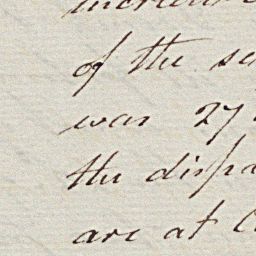 of the
was 27
the dispa
are at